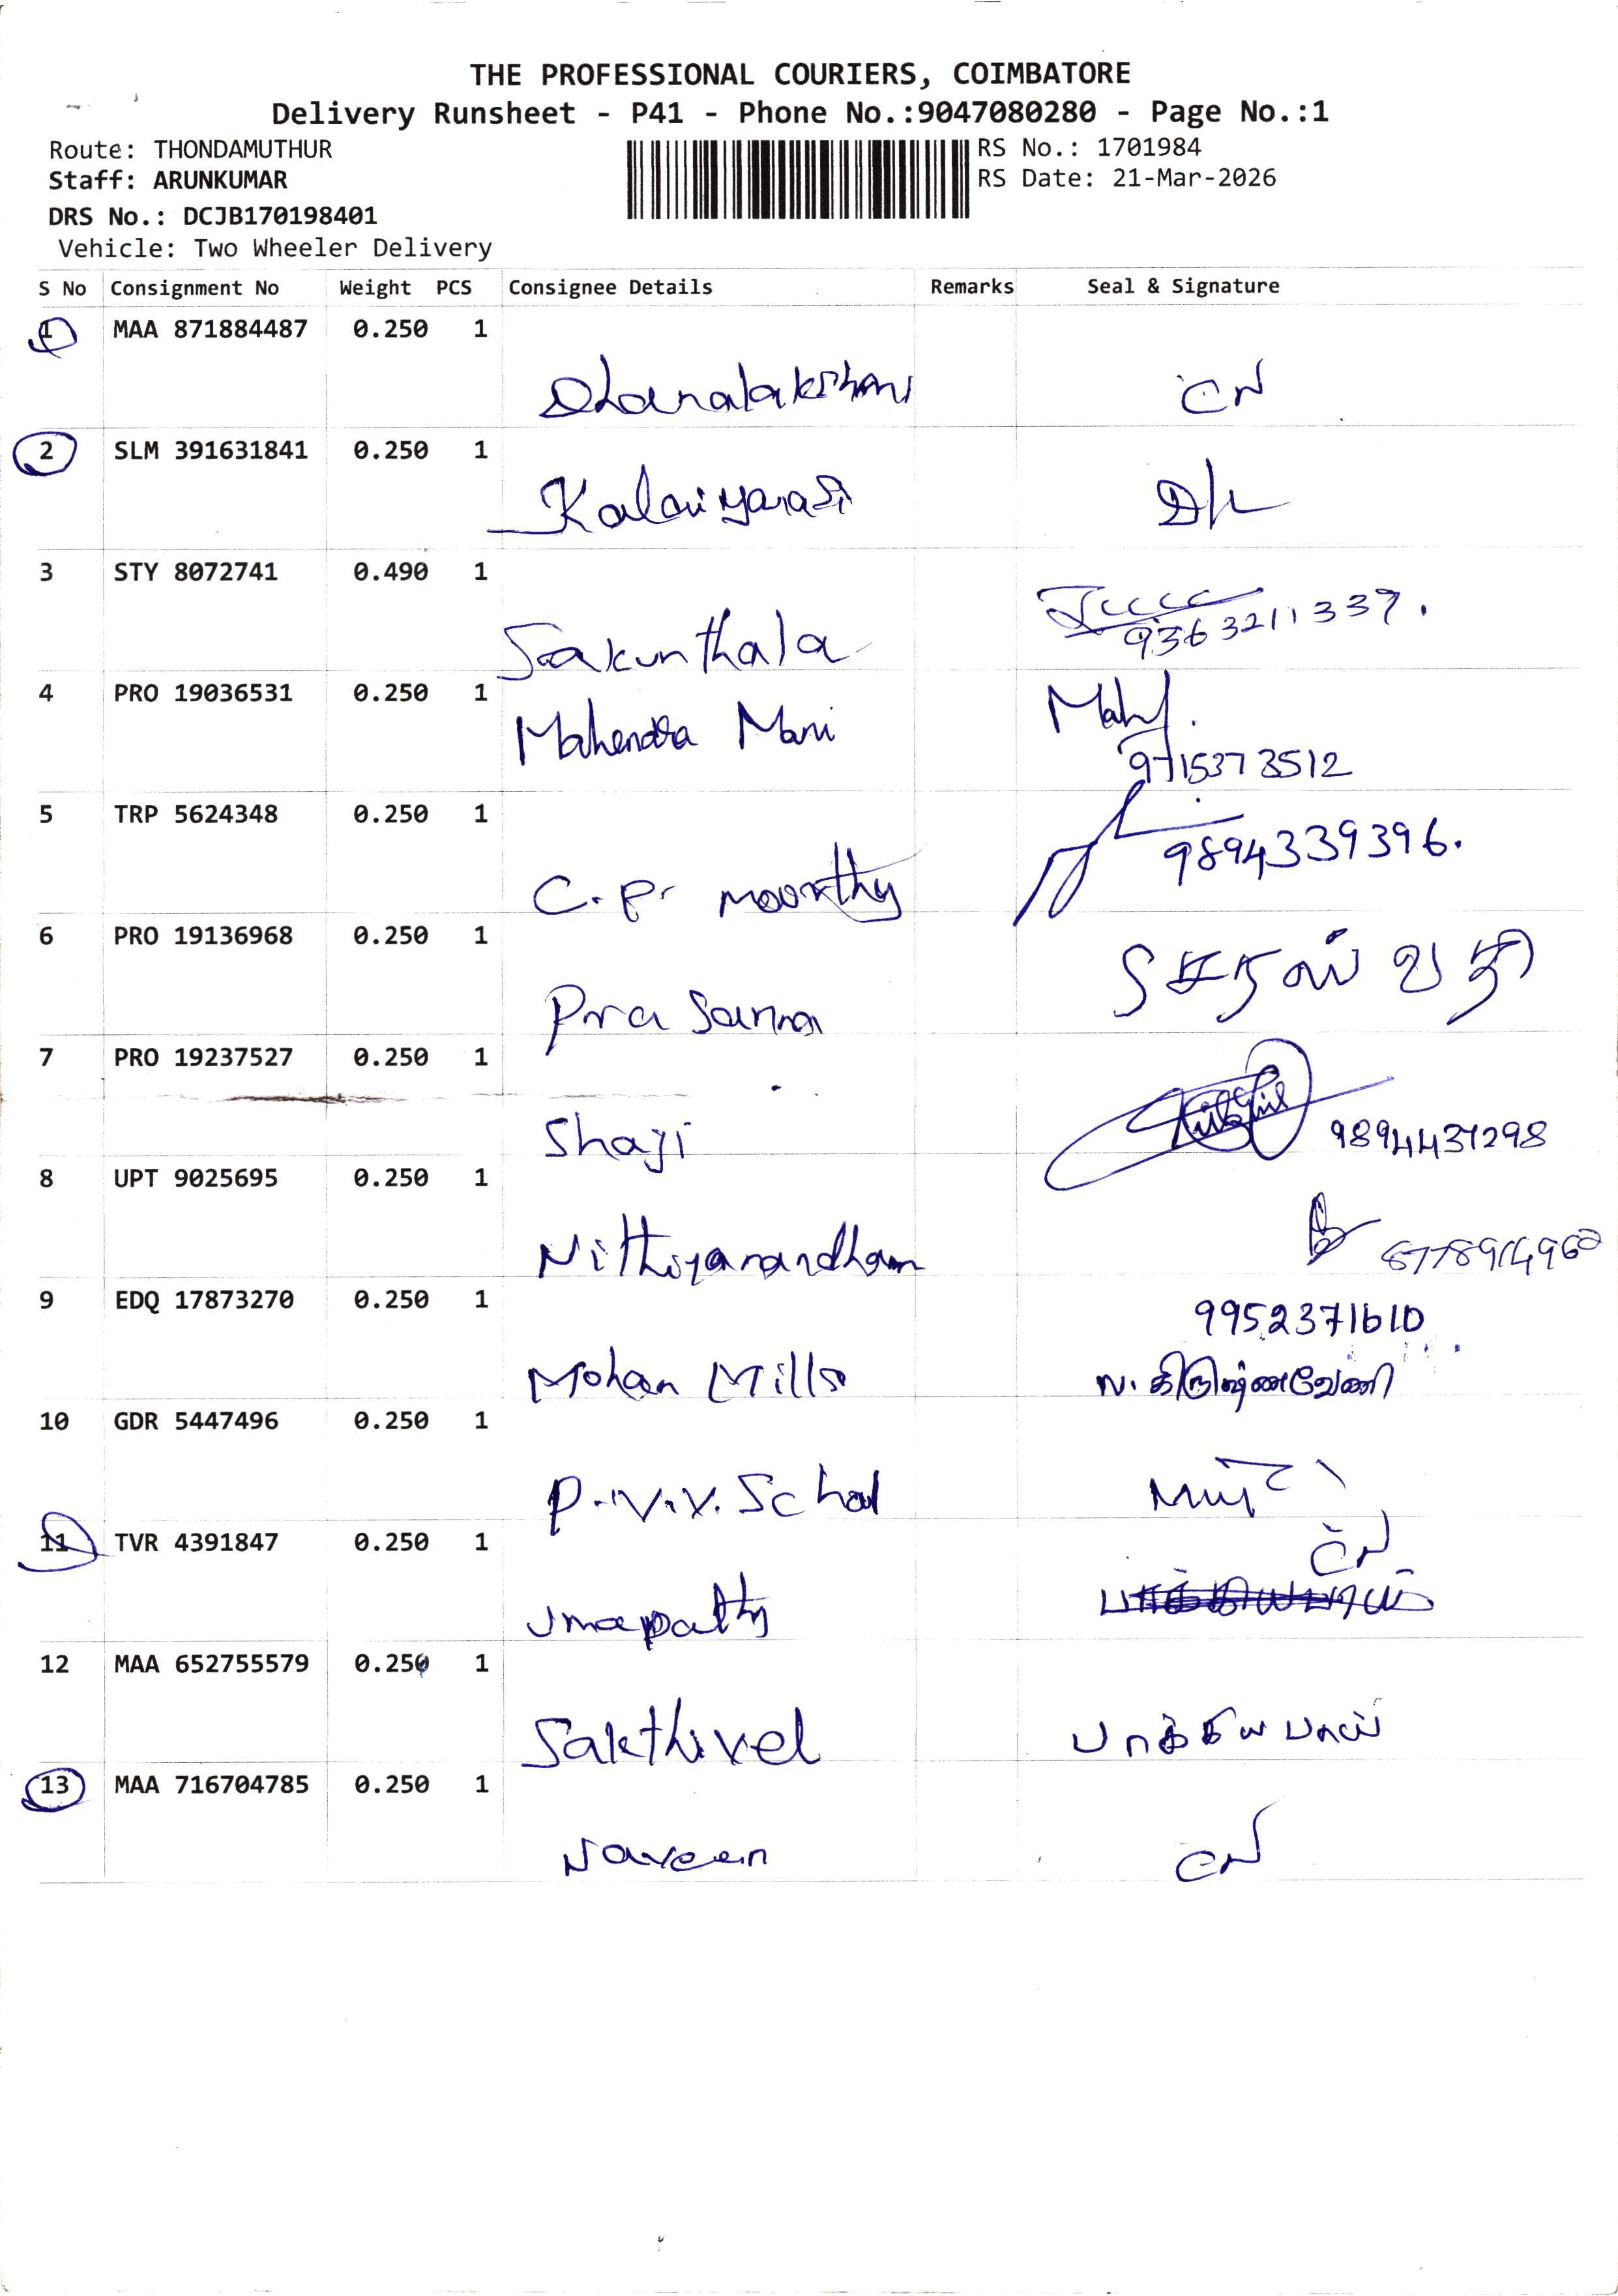 THE PROFESSIONAL COURIERS, COIMBATORE
Delivery Runsheet - P41 - Phone No.:9047080280 - Page No.:1
Route: THONDAMUTHUR
Staff: ARUNKUMAR
DRS No.: DCJB170198401
Vehicle: Two Wheeler Delivery
RS No.: 1701984
RS Date: 21-Mar-2026
S No Consignment No Weight PCS Consignee Details Remarks Seal & Signature
1 MAA 871884487 0.250 1
Dhanalakshmi
2 SLM 391631841 0.250 1
Kalaiyarasi
3 STY 8072741 0.490 1
9363211337.
Sakunthala
4 PRO 19036531 0.250 1
Mahendra Mani
9715373512
5 TRP 5624348 0.250 1
9894339396.
C.P. Moorthy
6 PRO 19136968 0.250 1
Prasanna
7 PRO 19237527 0.250 1
Shaji 9894431298
8 UPT 9025695 0.250 1
Nithiyanandham
9 EDQ 17873270 0.250 1
9952371610
Mohan Mills N. கிருஷ்ணவேணி
10 GDR 5447496 0.250 1
P.V.V. School
11 TVR 4391847 0.250 1
Umapathy
12 MAA 652755579 0.250 1
Sakthivel
13 MAA 716704785 0.250 1
Naveen